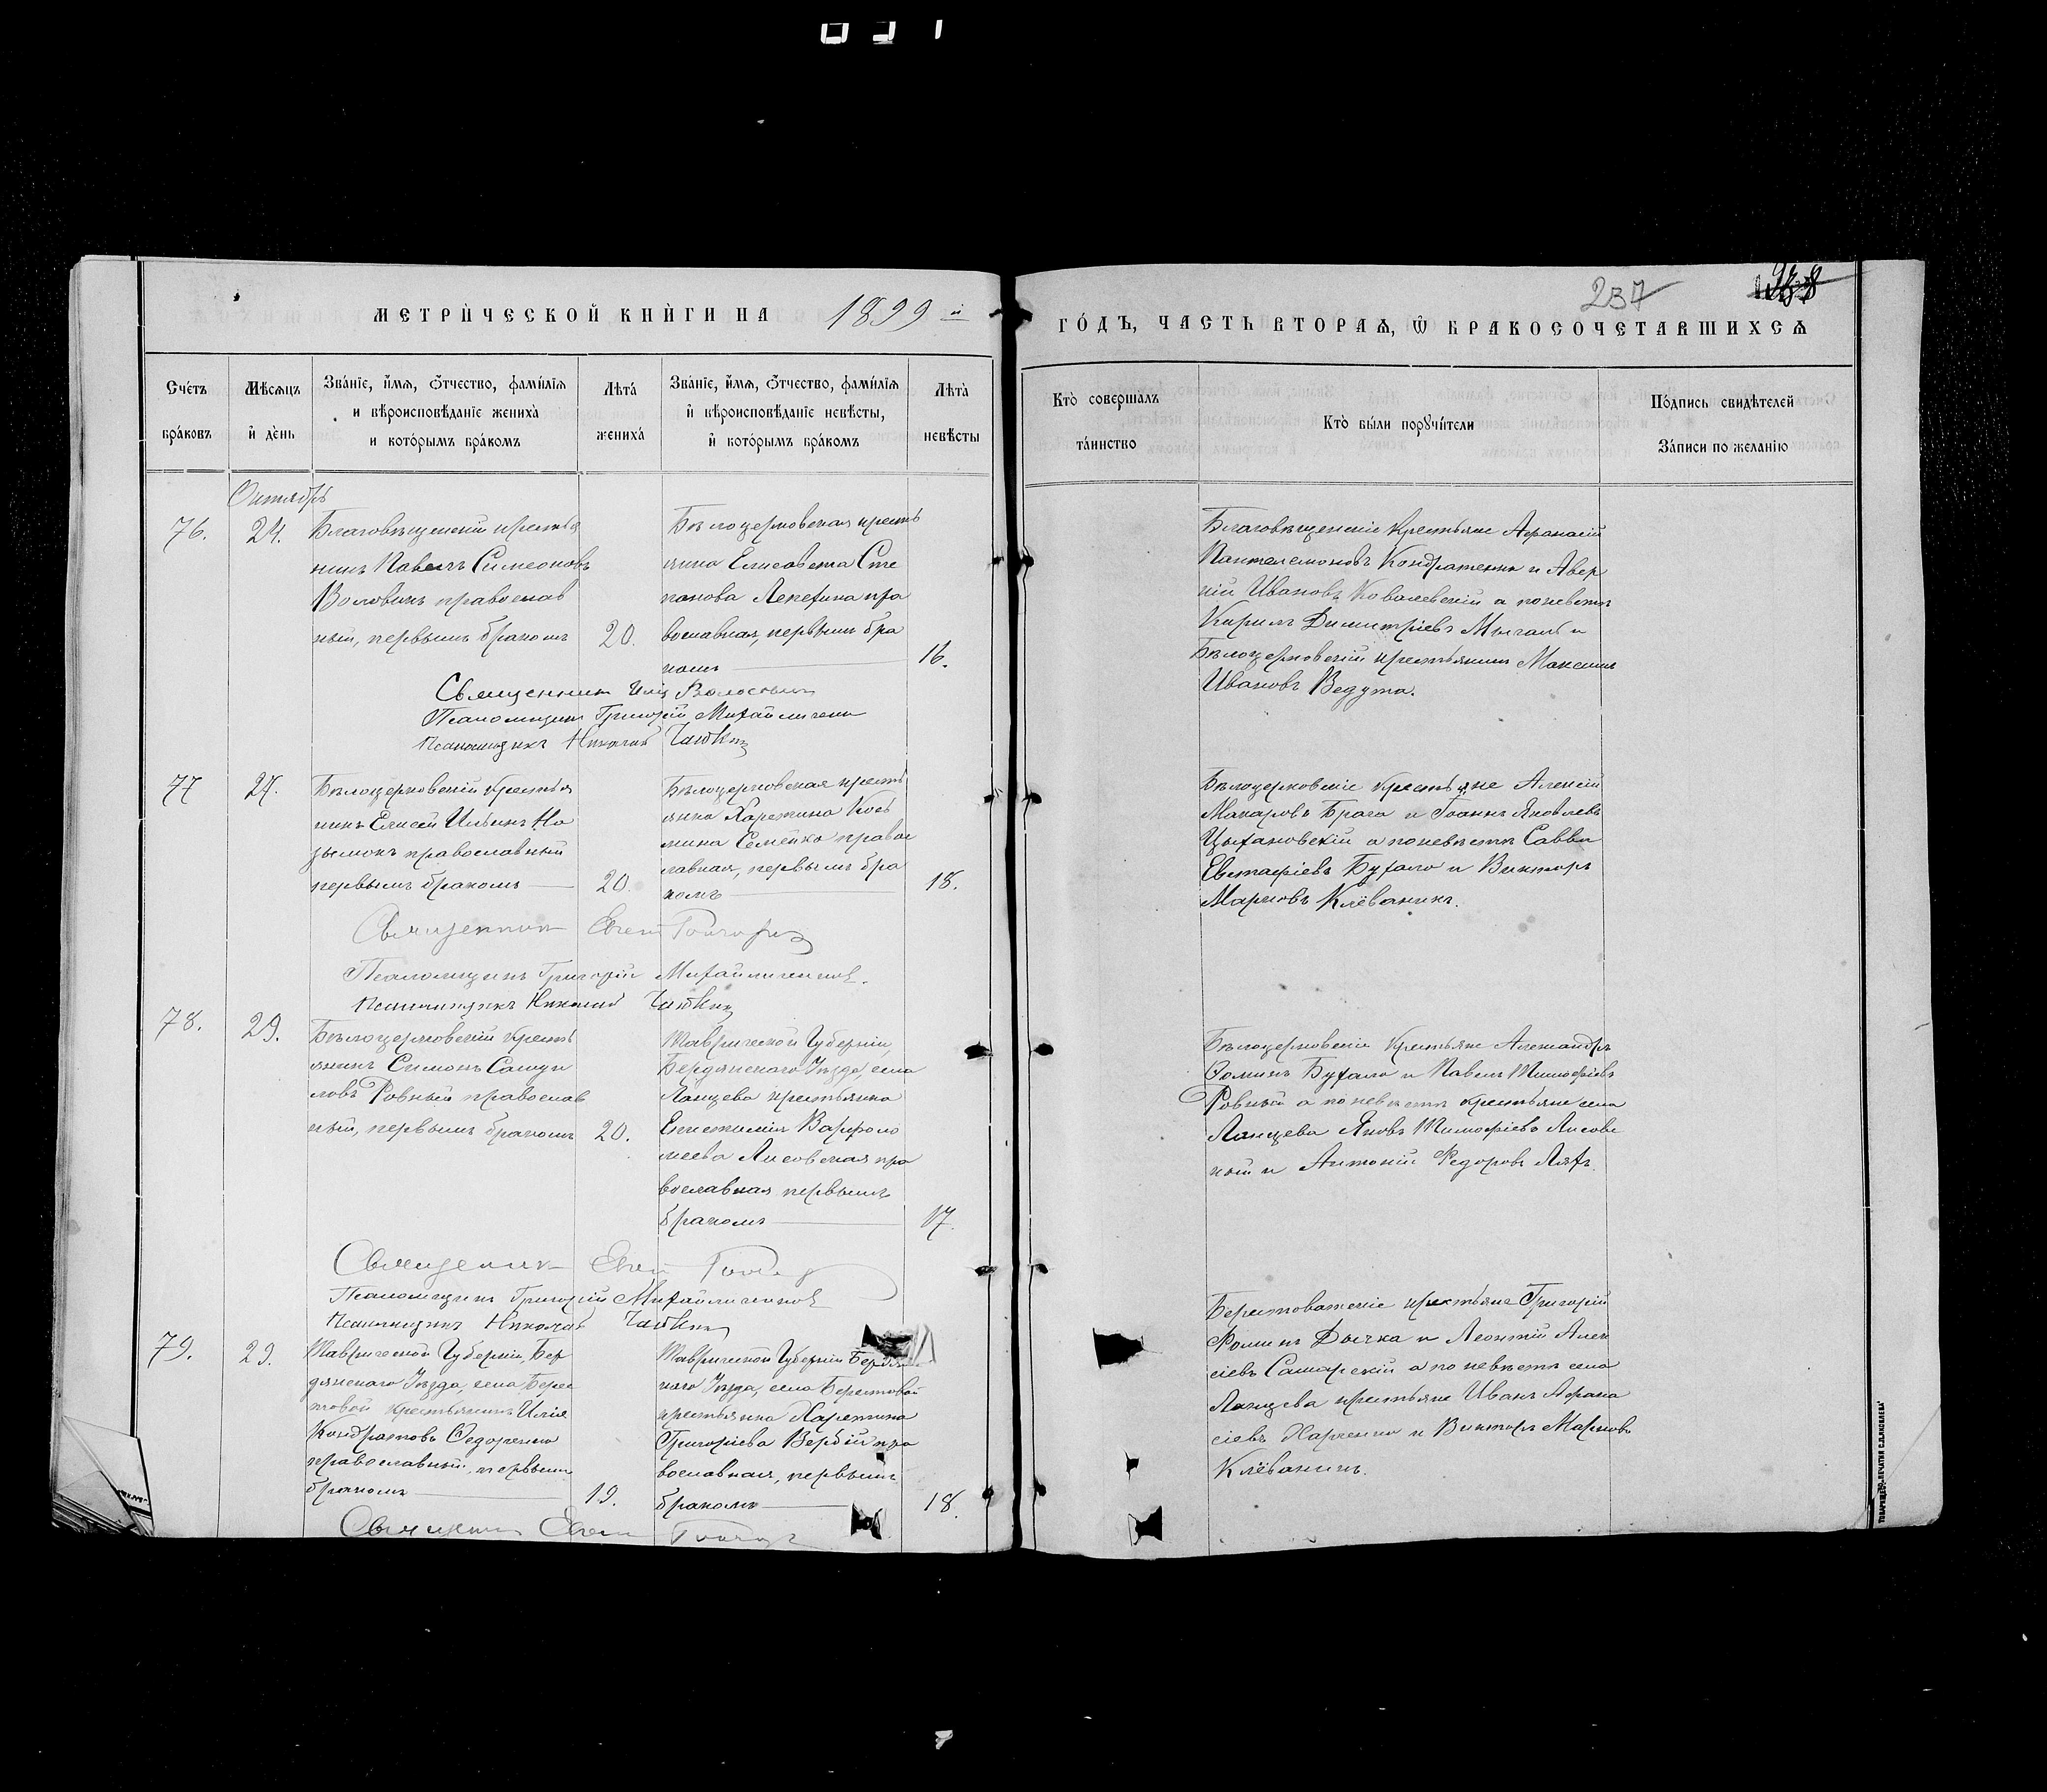 237
МЕТРИЧЕСКОЙ КНИГИ НА 1899 й
ГОДЪ, ЧАСТЬ ВТОРАЯ, Ѿ БРАКОСОЧЕТАВШИХСЯ
Счетъ браковъ
Мѣсяцъ и день
Званіе, имя, отчество, фамилія
и вѣроисповѣданіе жениха
и которымъ бракомъ
Лѣта жениха
Званіе, имя, отчество, фамилія
и вѣроисповѣданіе невѣсты,
и которымъ бракомъ
Лѣта невѣсты
Кто совершалъ
таинство
Кто были поручители
Подпись свидѣтелей
Записи по желанію
Октябрь
76.
24.
Благовѣщенскій крестья
нинъ Павелъ Симеоновъ
Воловикъ православ
ный, первымъ бракомъ
20.
Бѣлоцерковская кресть
янка Елисавета Сте
панова Лепехина пра
вославная, первымъ бра
комъ
16.
Священникъ
Псаломщикъ Григорій Михайличенко
Псаломщикъ Николай
Благовѣщенскіе крестьяне Афанасій
Панталемоновъ Кондратенко и Авер
кій Ивановъ Ковалевскій а по невѣстѣ
Кирилъ Димитріевъ и
Бѣлоцерковскій крестьянинъ Максимъ
Ивановъ Ведута.
77
27.
Бѣлоцерковскій крестья
нинъ Елисей Ильинъ
православный
первымъ бракомъ
20.
Бѣлоцерковская кресть
янка Харитина Кось
мина Семейко правос
лавная, первымъ бра
комъ
18.
Священникъ
Псаломщикъ Григорій Михайличенко.
Псаломщикъ Николай
Бѣлоцерковскіе крестьяне Алексій
Макаровъ Брага и Іоаннъ Яковлевъ
Цыхановскій а по невѣстѣ Савва
Евстафіевъ Бухало и Викторъ
Марковъ Клёваникъ.
78.
29.
Бѣлоцерковскій кресть
янинъ Симонъ Самуи
ловъ Ровный православ
ный, первымъ бракомъ
20.
Таврической Губерніи,
Бердянскаго Уѣзда, села
Ланцева крестьянка
Епистимія Варфоло
меева Лисовская пра
вославная первымъ
бракомъ
17.
Священникъ
Псаломщикъ Григорій Михайличенко
Псаломщикъ Николай
Бѣлоцерковскіе крестьяне Александръ
Ѳоминъ Бухало и Павелъ Тимофіевъ
Ровный а по невѣстѣ крестьяне села
Ланцева Яковъ Тимофіевъ Лисовс
кый и Антоній Федоровъ Ляхъ.
79.
29.
Таврической Губерніи, Бер
дянскаго Уѣзда, села Берес
товой крестьянинъ Илія
Кондратовъ Ѳедоренко
православный, первымъ
бракомъ
19.
Таврической Губерніи Бердян
скаго Уѣзда, села Берестовой
крестьянка Харитина
Григоріева Вербій пра
вославная, первымъ
бракомъ
18.
Священникъ
Берестоватскіе крестьяне Григорій
Фоминъ Дычка и Леонтій Алек
сіевъ Самарскій а по невѣстѣ села
Ланцева крестьяне Иванъ Афана
сіевъ Харченко и Викторъ Марковъ
Клёваникъ.